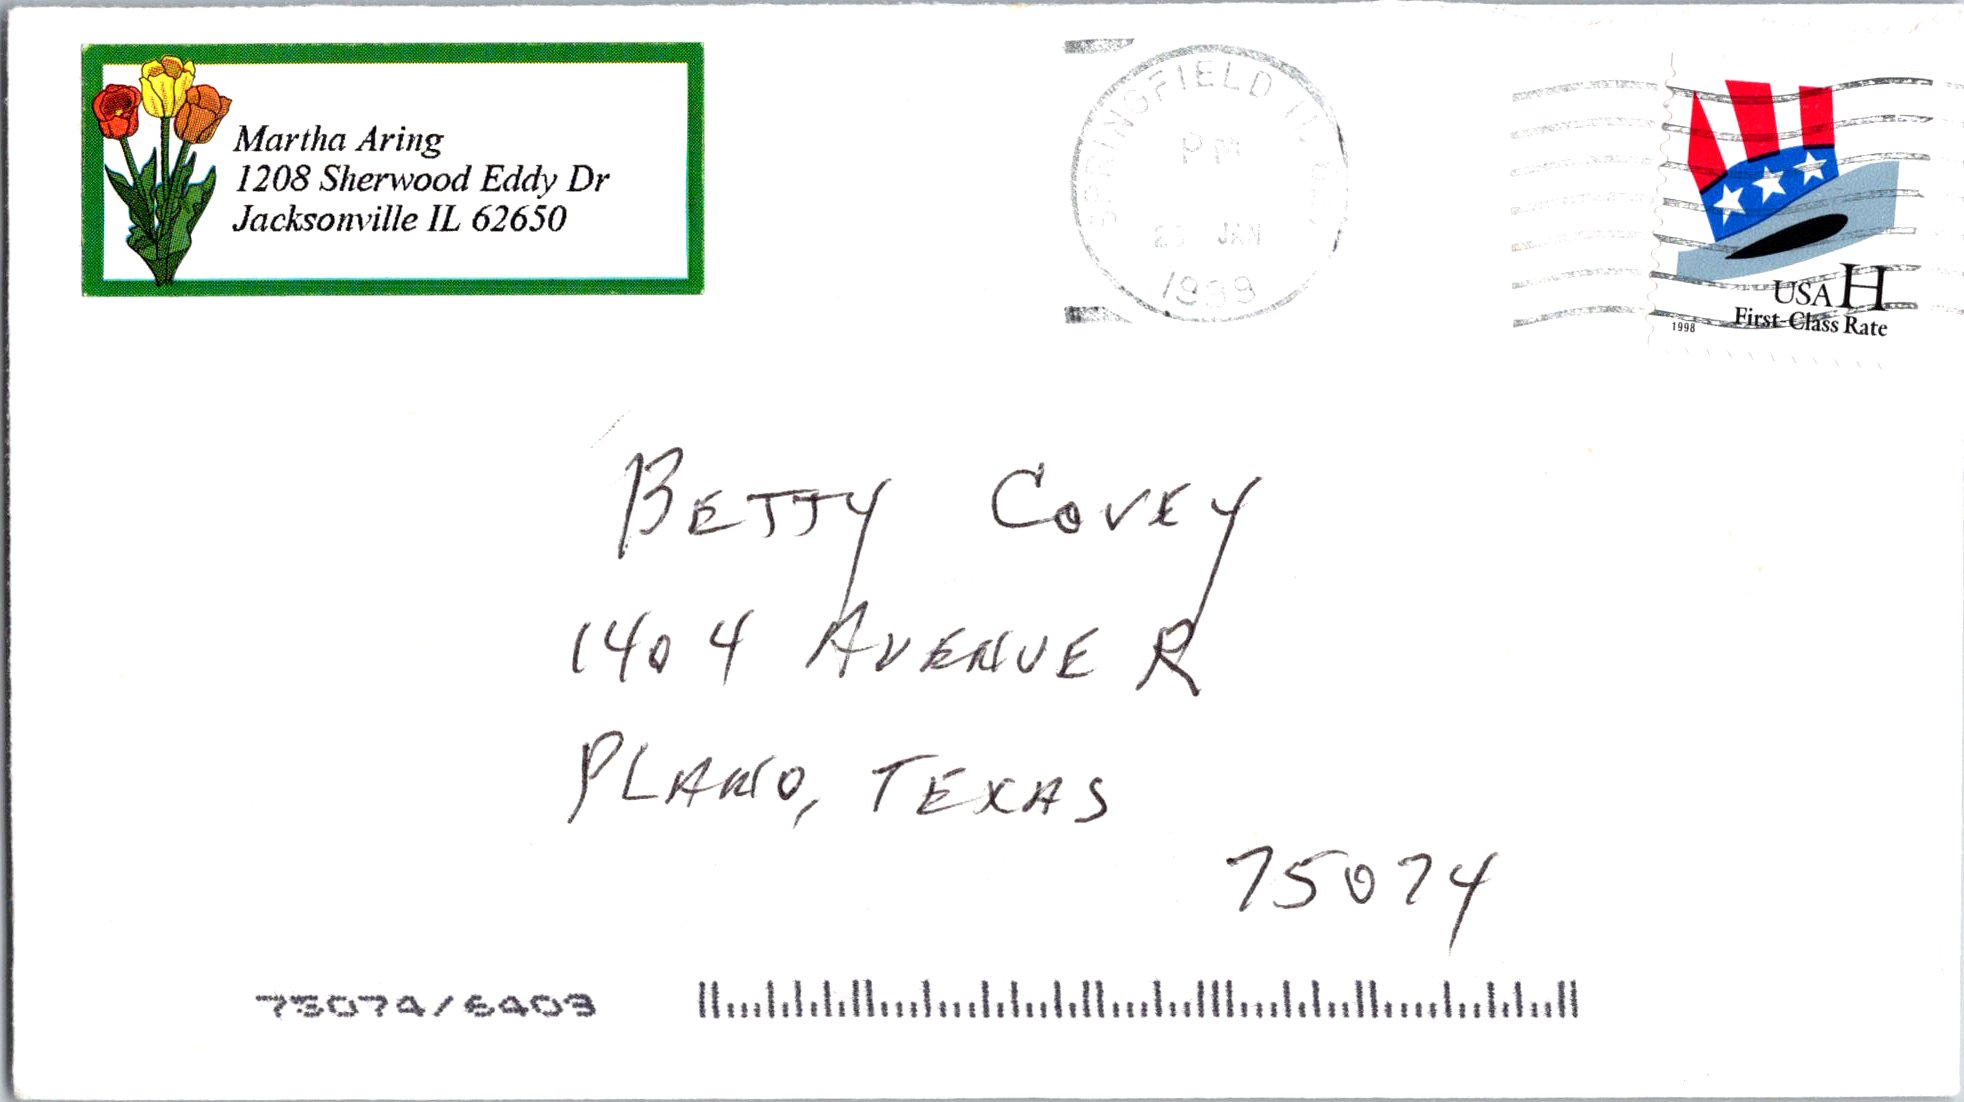 Martha Aring
1208 Sherwood Eddy Dr
Jacksonville IL 62650
SPRINGFIELD IL
PM
JAN
1999
USA H
First-Class Rate
1998
BETTY COVEY
1404 AVENUE R
PLANO, TEXAS
75074
75074/6403